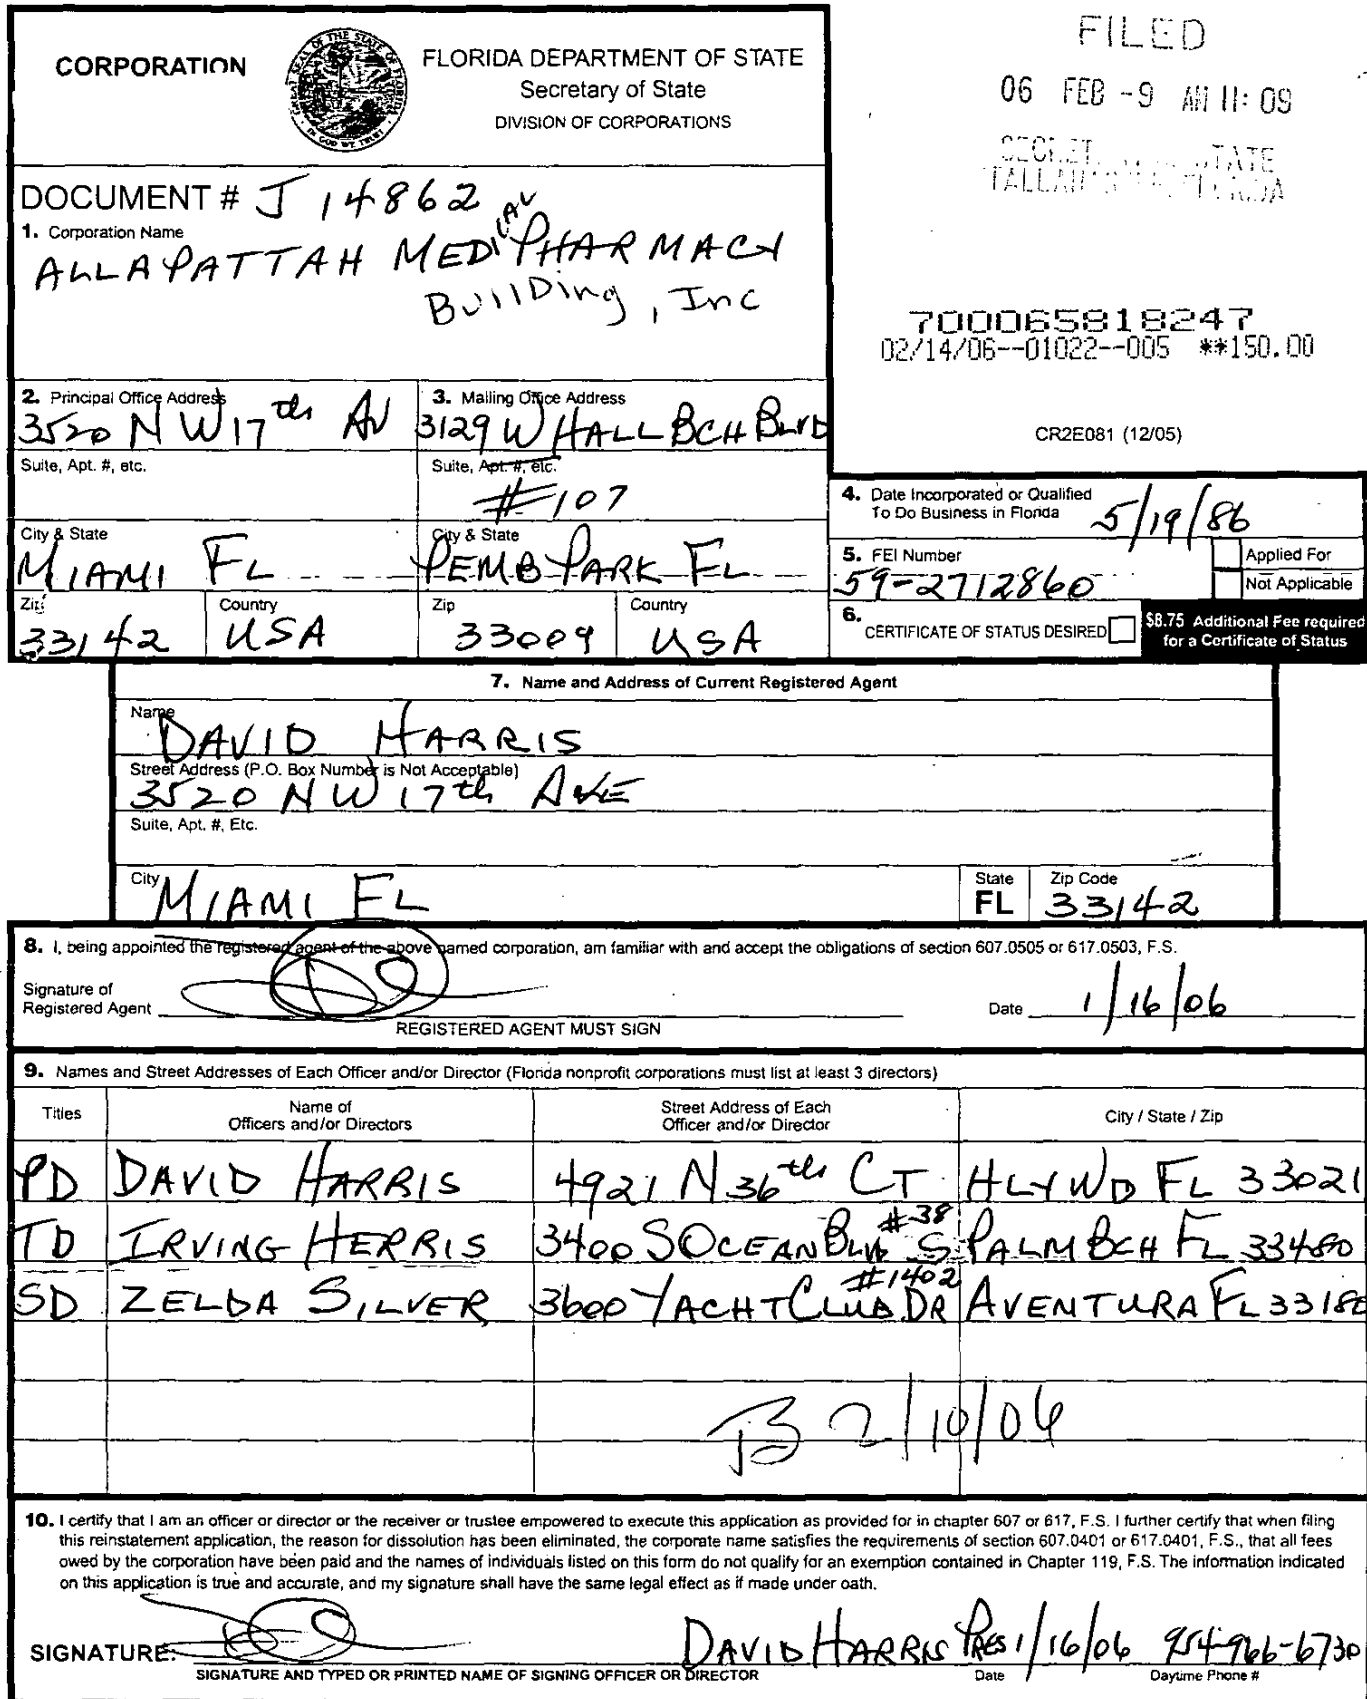 CORPORATION
FLORIDA DEPARTMENT OF STATE
Secretary of State
DIVISION OF CORPORATIONS
FILED
06 FEB -9 AM 11:09
TATE
DOCUMENT # J 14862
1. Corporation Name
ALLAPATTAH MEDICAL PHARMACY
Building, Inc
700065818247
02/14/06--01022--005 **150.00
CR2E081 (12/05)
2. Principal Office Address
3520 NW 17th AV
3. Mailing Office Address
3129 W HALL BCH BLVD
Suite, Apt. #, etc.
Suite, Apt. #, etc.
#107
City & State
MIAMI FL
City & State
PEMB PARK FL
Zip
33142
Country
USA
Zip
33009
Country
USA
4. Date Incorporated or Qualified
To Do Business in Florida
5/19/86
5. FEI Number
59-2712860
Applied For
Not Applicable
6. CERTIFICATE OF STATUS DESIRED
$8.75 Additional Fee required
for a Certificate of Status
7. Name and Address of Current Registered Agent
Name
DAVID HARRIS
Street Address (P.O. Box Number is Not Acceptable)
3520 NW 17th AVE
Suite, Apt. #, Etc.
City
MIAMI FL
State
FL
Zip Code
33142
8. I, being appointed the registered agent of the above named corporation, am familiar with and accept the obligations of section 607.0505 or 617.0503, F.S.
Signature of
Registered Agent
Date 1/16/06
REGISTERED AGENT MUST SIGN
9. Names and Street Addresses of Each Officer and/or Director (Florida nonprofit corporations must list at least 3 directors)
Titles
Name of
Officers and/or Directors
Street Address of Each
Officer and/or Director
City / State / Zip
PD DAVID HARRIS 4921 N 36th CT HLYWD FL 33021
TD IRVING HERRIS 3400 S OCEAN BLVD #38 S PALM BCH FL 33480
SD ZELDA SILVER 3600 YACHT CLUB DR #1402 AVENTURA FL 33180
2/10/06
10. I certify that I am an officer or director or the receiver or trustee empowered to execute this application as provided for in chapter 607 or 617, F.S. I further certify that when filing
this reinstatement application, the reason for dissolution has been eliminated, the corporate name satisfies the requirements of section 607.0401 or 617.0401, F.S., that all fees
owed by the corporation have been paid and the names of individuals listed on this form do not qualify for an exemption contained in Chapter 119, F.S. The information indicated
on this application is true and accurate, and my signature shall have the same legal effect as if made under oath.
SIGNATURE:
DAVID HARRIS PRES 1/16/06 954-966-6730
SIGNATURE AND TYPED OR PRINTED NAME OF SIGNING OFFICER OR DIRECTOR
Date
Daytime Phone #